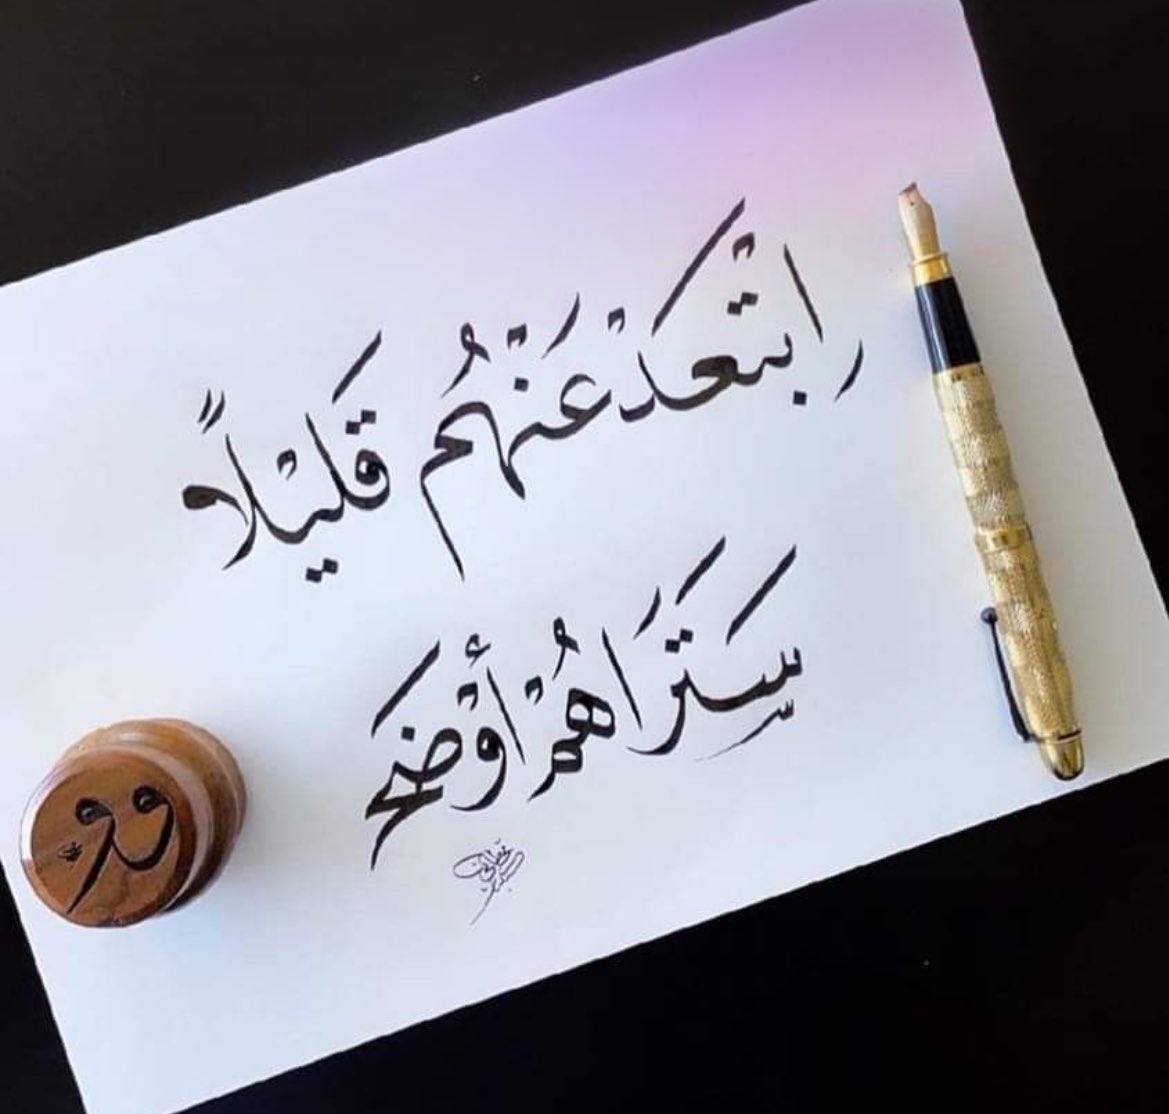 اِبْتَعَدْ عَنْهُم قَلِيْلاً
سَتَرَاهُمْ أَوْضَح